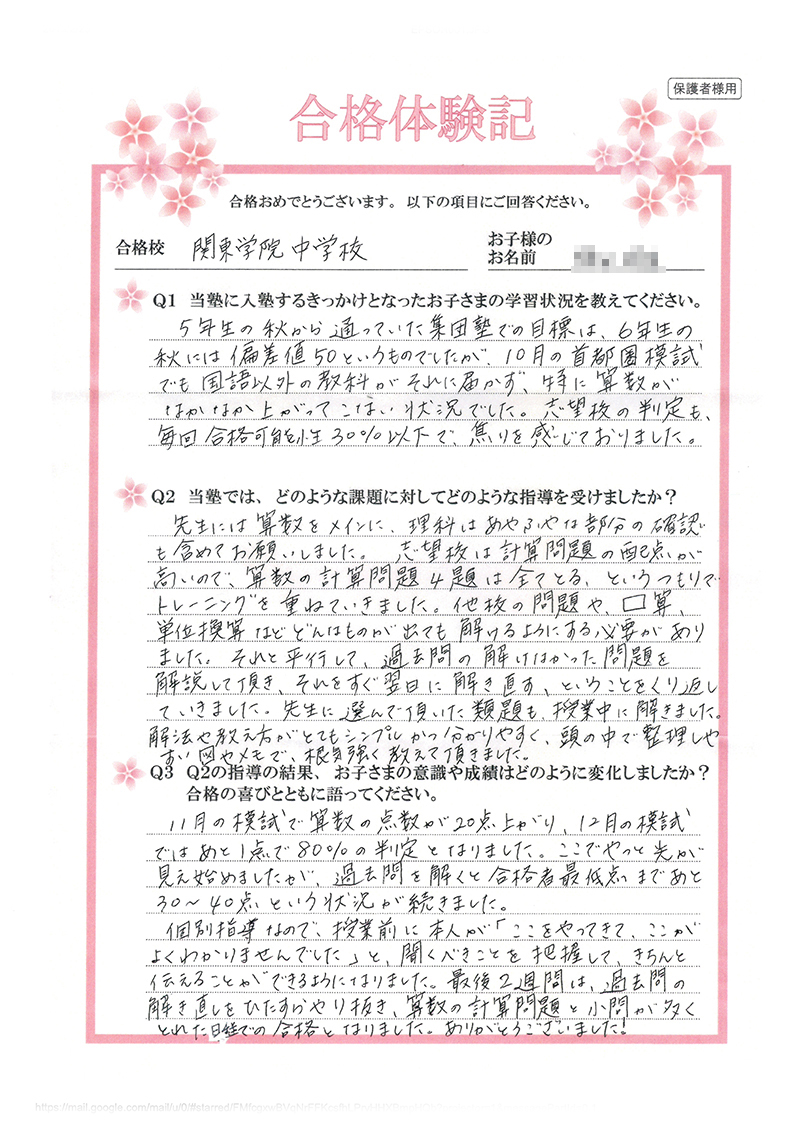 保護者様用
合格体験記
合格おめでとうございます。以下の項目にご回答ください。
合格校 関東学院中学校
お子様の
お名前
Q1 当塾に入塾するきっかけとなったお子さまの学習状況を教えてください。
5年生の秋から通っていた集団塾での目標は、6年生の
秋には偏差値50というものでしたが、10月の首都圏模試
でも国語以外の教科がそれに届かず、特に算数が
なかなか上がってこない状況でした。志望校の判定も、
毎回合格可能性30%以下で、焦りを感じておりました。
Q2 当塾では、どのような課題に対してどのような指導を受けましたか？
先生には算数をメインに、理科はあやふやな部分の確認
も含めてお願いしました。志望校は計算問題の配点が
高いので、算数の計算問題4題は全てとる、というつもりで
トレーニングを重ねていきました。他校の問題や、□算、
単位換算などどんなものが出ても解けるようにする必要があり
ました。それと平行して、過去問の解けなかった問題を
解説して頂き、それをすぐ翌日に解き直す、ということをくり返し
ていきました。先生に選んで頂いた類題も、授業中に解きました。
解法や教え方がとてもシンプルかつ分かりやすく、頭の中で整理しや
すい図やメモで、根気強く教えて頂きました。
Q3 Q2の指導の結果、お子さまの意識や成績はどのように変化しましたか？
合格の喜びとともに語ってください。
11月の模試で算数の点数が20点上がり、12月の模試
ではあと1点で80%の判定となりました。ここでやっと先が
見え始めましたが、過去問を解くと合格者最低点まであと
30～40点という状況が続きました。
個別指導なので、授業前に本人が「ここをやってきて、ここが
よくわかりませんでした」と、聞くべきことを把握して、きちんと
伝えることができるようになりました。最後2週間は、過去問の
解き直しをひたすらやり抜き、算数の計算問題と小問が多く
とれた日程での合格となりました。ありがとうございました！